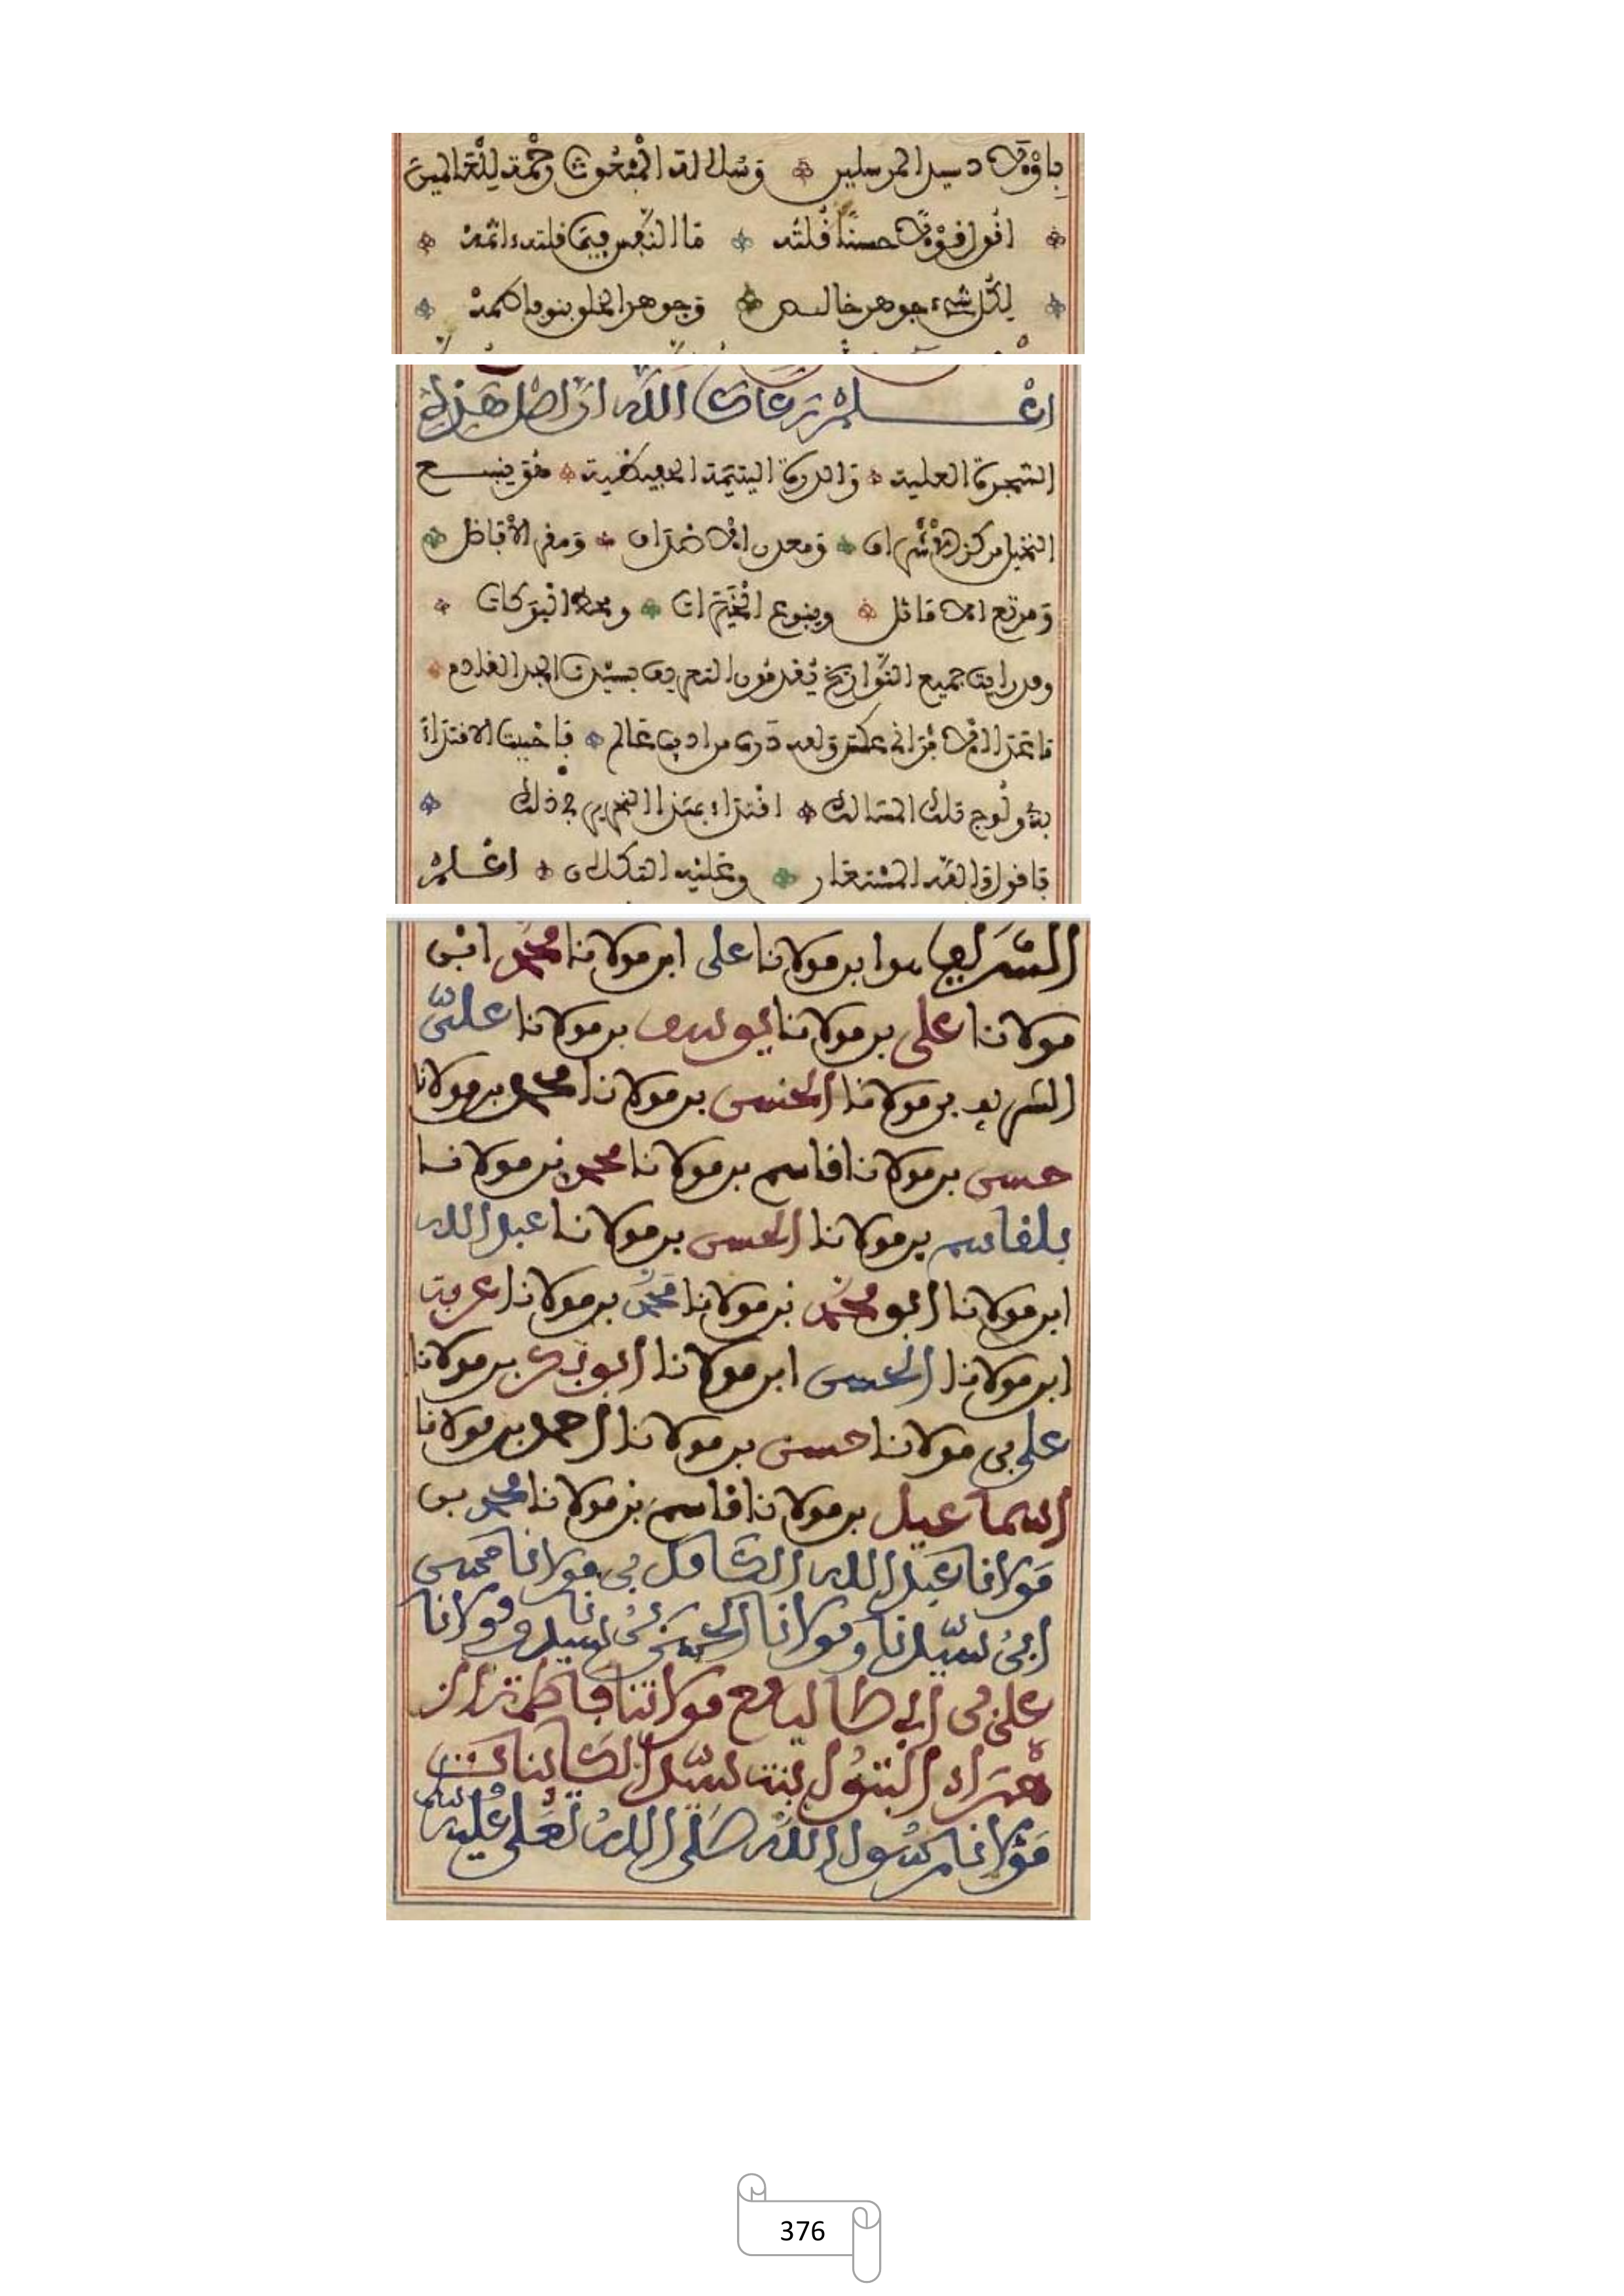 باولاد سيد المرسلين وسلالة المبعوث رحمة للعالمين
اقول قولا حسنا قلته ما النفس فيما قلته
لكل شيء جوهر خالص وجوهر الخلق بنو فاطمة
اعلم رعاك الله ان اصل هذه
الشجرة العلية والدرة اليتيمة هو ينبع
النخيل مركز الاشراف ومعدن ومقر الافاضل
ومرتع الاماثل وينبوع الخيرات ومحل البركات
وقد رايت جميع التواريخ يقدمون التعريف بسيدنا الجد القادم
من اديب عالم فاحببت الاقتداء
تلك المسالك اقتداء بهذا في ذلك
فاقول والله المستعان وعليه التكلان اعلم
الشريف ابن مولانا على ابن مولانا محمد ابن
مولانا على بن مولانا يوسف بن مولانا على
الشريف بن مولانا الحسن بن مولانا محمد بن مولانا
حسن بن مولانا قاسم بن مولانا محمد بن مولانا
بلقاسم بن مولانا الحسن بن مولانا عبد الله
ابن مولانا ابو محمد بن مولانا محمد بن مولانا عرفة
ابن مولانا الحسن ابن مولانا ابو بكر بن مولانا
على بن مولانا حسن بن مولانا احمد بن مولانا
اسماعيل بن مولانا قاسم بن مولانا محمد بن
مولانا عبد الله الكامل بن مولانا
ابن سيدنا ومولانا الحسن بن سيدنا ومولانا
على بن ابي طالب مع مولاتنا فاطمة الز
هراء البتول بنت سيد الكائنات
مولانا رسول الله صلى الله تعلى عليه وسلم
376